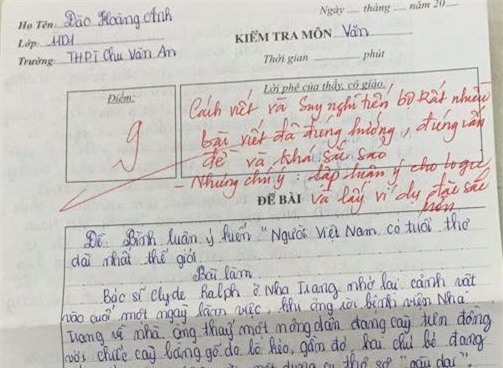 Họ Tên: Đào Hoàng Anh
Lớp: 11D1
Trường: THPT Chu Văn An
Ngày tháng năm 20
KIỂM TRA MÔN Văn
Thời gian phút
Điểm:
9
Lời phê của thầy, cô giáo
Cách viết và suy nghĩ tiến bộ rất nhiều
bài viết đã đúng hướng, đúng vấn
đề và khá sắc sảo
- Nhưng chú ý: lập luận ý cho logic
và lấy ví dụ đặc sắc
hơn
ĐỀ BÀI
Đề: Bình luận ý kiến "Người Việt Nam có tuổi thơ
dài nhất thế giới
Bài làm
Bác sĩ Clyde Ralph ở Nha Trang nhớ lại cảnh vật
vào cuối một ngày làm việc, khi ông rời bệnh viện Nha
Trang về nhà. Ông thấy một nông dân đang cày trên đồng
với chiếc cày bằng gỗ do bò kéo, gần đó hai chú bé đang
thô sơ "gầu dai".